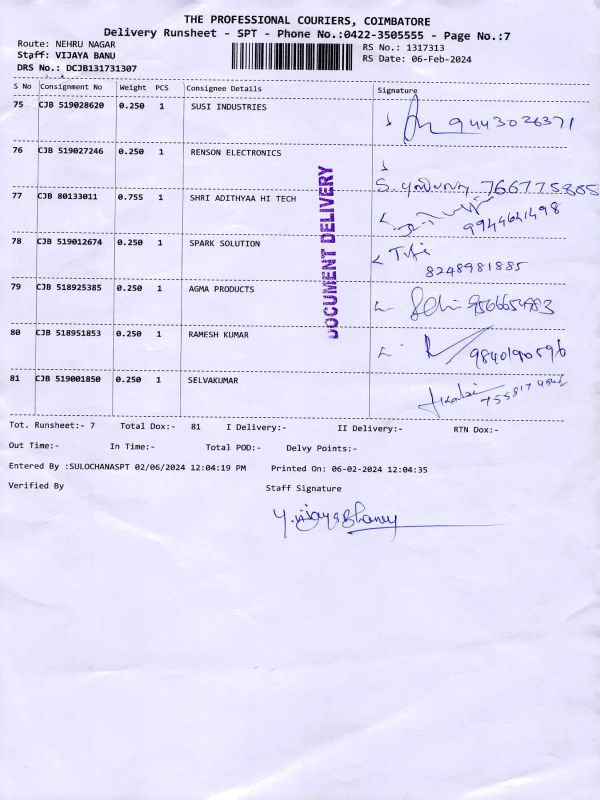 THE PROFESSIONAL COURIERS, COIMBATORE
Delivery Runsheet - SPT - Phone No.:0422-3505555 - Page No.:7
Route: NEHRU NAGAR RS No.: 1317313
Staff: VIJAYA BANU RS Date: 06-Feb-2024
DRS No.: DCJB131731307
S No Consignment No Weight PCS Consignee Details Signature
75 CJB 519028620 0.250 1 SUSI INDUSTRIES 9443026371
76 CJB 519027246 0.250 1 RENSON ELECTRONICS
S. 7667775885
77 CJB 80133011 0.755 1 SHRI ADITHYAA HI TECH
9944641498
78 CJB 519012674 0.250 1 SPARK SOLUTION
8248981885
79 CJB 518925385 0.250 1 AGMA PRODUCTS
80 CJB 518951853 0.250 1 RAMESH KUMAR
9840190596
81 CJB 519001850 0.250 1 SELVAKUMAR
DOCUMENT DELIVERY
Tot. Runsheet:- 7 Total Dox:- 81 I Delivery:- II Delivery:- RTN Dox:-
Out Time:- In Time:- Total POD:- Delvy Points:-
Entered By :SULOCHANASPT 02/06/2024 12:04:19 PM Printed On: 06-02-2024 12:04:35
Verified By Staff Signature